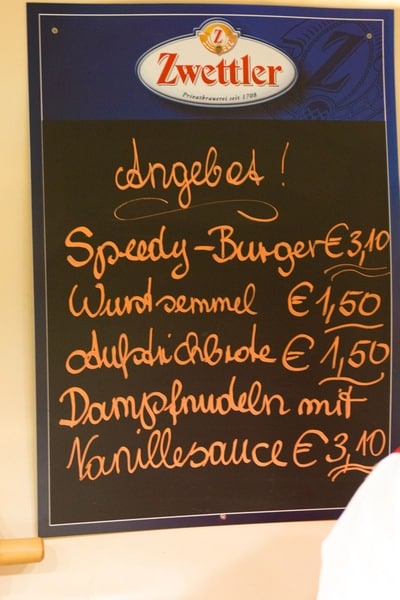 Z
Zwettler
Privatbrauerei seit 1708
Angebot!
Speedy-Burger € 3,10
Wurstsemmel € 1,50
Aufstrichbrote € 1,50
Dampfnudeln mit
Vanillesauce € 3,10